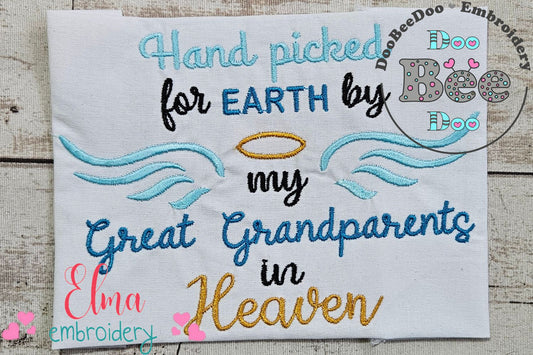 Hand picked
for EARTH by
my
Great Grandparents
in
Heaven
DooBeeDoo • Embroidery
Doo
Bee
Doo
Elma
embroidery